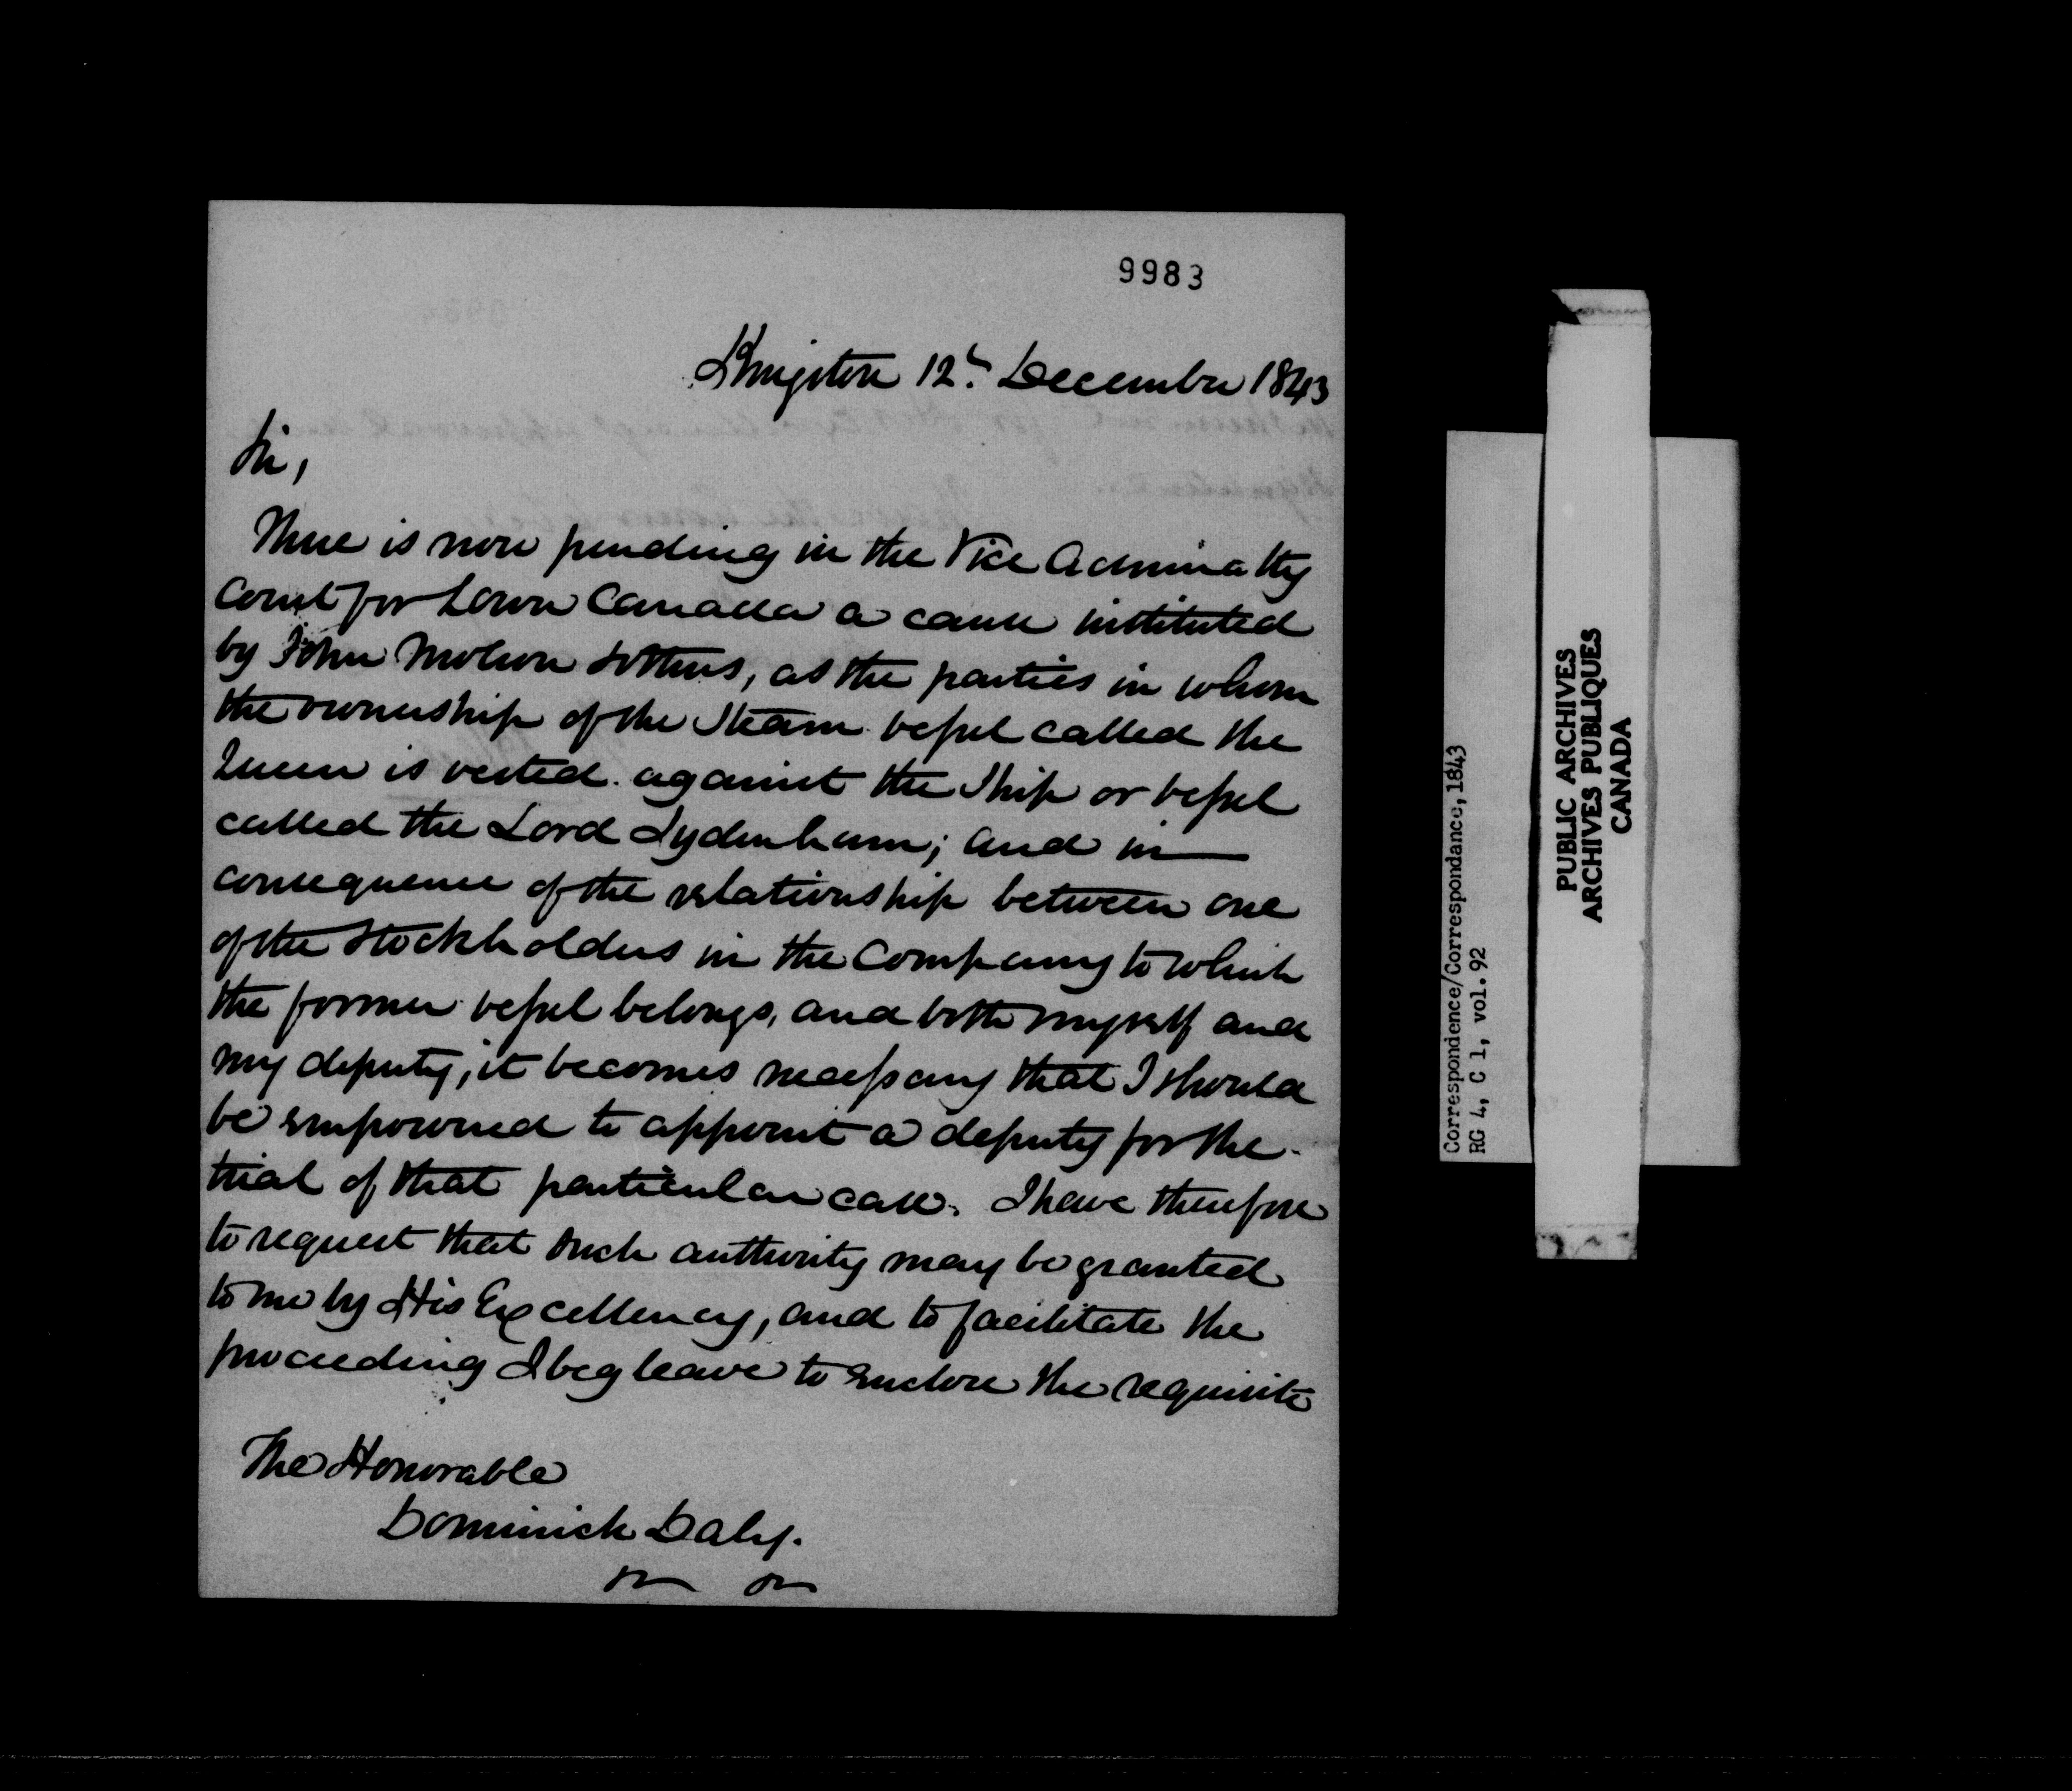 9983
Kingston 12th December 1843
Sir,
There is now pending in the Vice Admiralty
Court for Lower Canada a cause instituted
by John Molson & others, as the parties in whom
the ownership of the Steam vessel called the
Queen is vested against the Ship or vessel
called the Lord Sydenham; and in
consequence of the relationship between one
of the Stockholders in the Company to which
the former vessel belongs, and both myself and
my deputy, it becomes necessary that I should
be empowered to appoint a deputy for the
trial of that particular case. I have therefore
to request that such authority may be granted
to me by His Excellency, and to facilitate the
proceeding I beg leave to enclose the requisite
The Honorable
Dominick Daly.
Correspondence/Correspondance, 1843
RG 4, C 1, vol. 92
PUBLIC ARCHIVES
ARCHIVES PUBLIQUES
CANADA